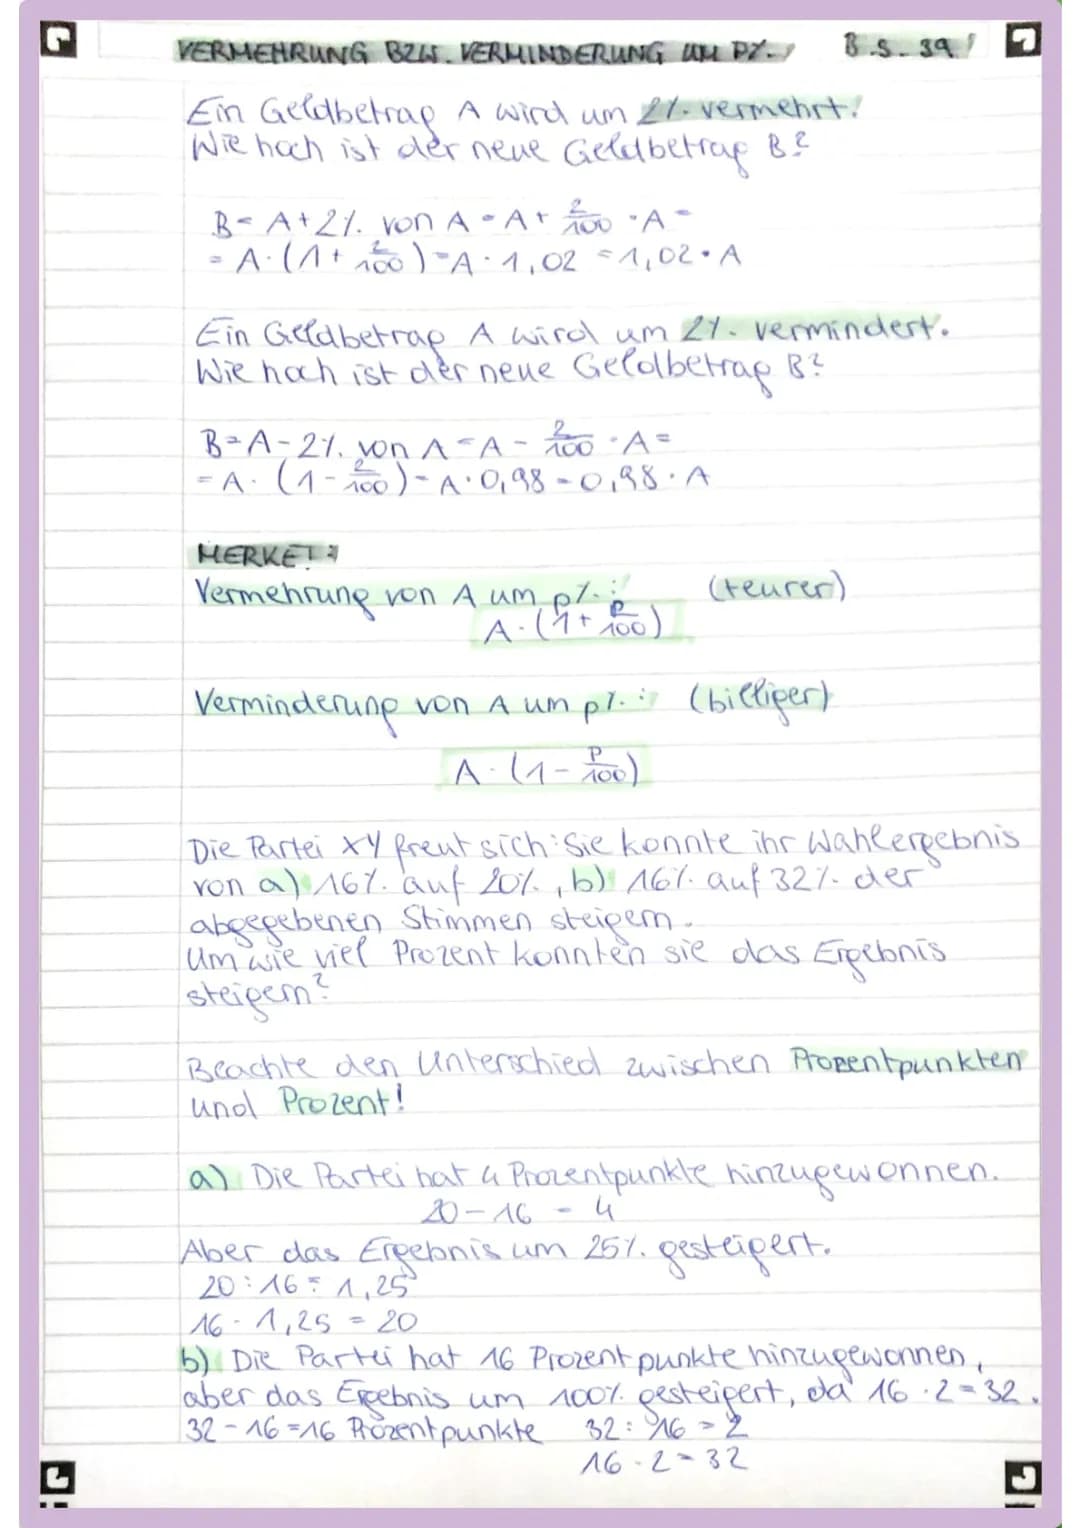 VERMEHRUNG BZW. VERMINDERUNG UM P%. B.S. 39
Ein Geldbetrag A wird um 2% vermehrt.
Wie hoch ist der neue Geldbetrag B?
B = A + 2% von A = A + 2/100 · A =
= A · (1 + 2/100) = A · 1,02 = 1,02 · A
Ein Geldbetrag A wird um 2% vermindert.
Wie hoch ist der neue Geldbetrag B?
B = A - 2% von A = A - 2/100 · A =
= A · (1 - 2/100) = A · 0,98 = 0,98 · A
MERKET:
Vermehrung von A um p%: (teurer)
A · (1 + p/100)
Verminderung von A um p%: (billiger)
A · (1 - p/100)
Die Partei XY freut sich: Sie konnte ihr Wahlergebnis
von a) 16% auf 20%, b) 16% auf 32% der
abgegebenen Stimmen steigern.
Um wie viel Prozent konnten sie das Ergebnis
steigern?
Beachte den Unterschied zwischen Prozentpunkten
und Prozent!
a) Die Partei hat 4 Prozentpunkte hinzugewonnen.
20 - 16 = 4
Aber das Ergebnis um 25% gesteigert.
20 : 16 = 1,25
16 · 1,25 = 20
b) Die Partei hat 16 Prozentpunkte hinzugewonnen,
aber das Ergebnis um 100% gesteigert, da 16 · 2 = 32.
32 - 16 = 16 Prozentpunkte 32 : 16 = 2
16 · 2 = 32